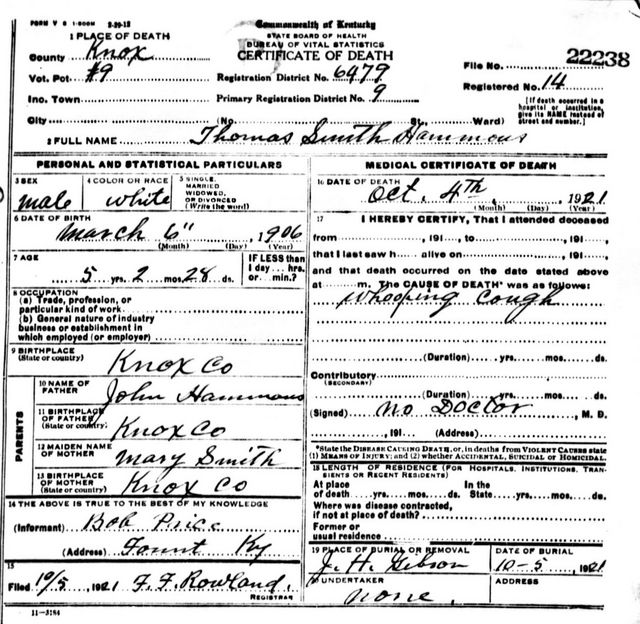 FORM V S 1-500M 3-29-13
Commonwealth of Kentucky
STATE BOARD OF HEALTH
BUREAU OF VITAL STATISTICS
CERTIFICATE OF DEATH
1 PLACE OF DEATH
County Knox
Vot. Pct #9
Inc. Town
City (No. St. Ward)
Registration District No. 6479
Primary Registration District No. 9
File No. 22238
Registered No. 14
[If death occurred in a hospital or institution, give its NAME instead of street and number.]
2 FULL NAME Thomas Smith Hammons
PERSONAL AND STATISTICAL PARTICULARS
3 SEX male
4 COLOR OR RACE white
5 SINGLE, MARRIED WIDOWED, OR DIVORCED (Write the word)
6 DATE OF BIRTH
March 6" 1906
(Month) (Day) (Year)
7 AGE
5 yrs. 2 mos. 28 ds.
IF LESS than 1 day...hrs. or...min.?
8 OCCUPATION
(a) Trade, profession, or
particular kind of work
(b) General nature of industry
business or establishment in
which employed (or employer)
9 BIRTHPLACE
(State or country) Knox Co
PARENTS
10 NAME OF FATHER John Hammons
11 BIRTHPLACE OF FATHER (State or country) Knox Co
12 MAIDEN NAME OF MOTHER Mary Smith
13 BIRTHPLACE OF MOTHER (State or country) Knox Co
14 THE ABOVE IS TRUE TO THE BEST OF MY KNOWLEDGE
(Informant) Bob Price
(Address) Fount Ky
15
Filed 10/5, 1921 F. F. Rowland.
REGISTRAR
11-3184
MEDICAL CERTIFICATE OF DEATH
16 DATE OF DEATH
Oct. 4th, 1921
(Month) (Day) (Year)
17 I HEREBY CERTIFY, That I attended deceased
from , 191 , to , 191 ,
that I last saw h alive on , 191 ,
and that death occurred on the date stated above
at m. The CAUSE OF DEATH* was as follows:
Whooping Cough
(Duration) yrs. mos. ds.
Contributory
(SECONDARY)
(Duration) yrs. mos. ds.
(Signed) No Doctor, M. D.
, 191 (Address)
*State the DISEASE CAUSING DEATH, or, in deaths from VIOLENT CAUSES state
(1) MEANS OF INJURY; and (2) whether ACCIDENTAL, SUICIDAL or HOMICIDAL.
18 LENGTH OF RESIDENCE (FOR HOSPITALS, INSTITUTIONS, TRANSIENTS OR RECENT RESIDENTS)
At place of death yrs. mos. ds. In the State yrs. mos. ds.
Where was disease contracted,
if not at place of death?
Former or
usual residence
19 PLACE OF BURIAL OR REMOVAL
J. H. Gibson
DATE OF BURIAL
10-5 1921
20 UNDERTAKER
none.
ADDRESS